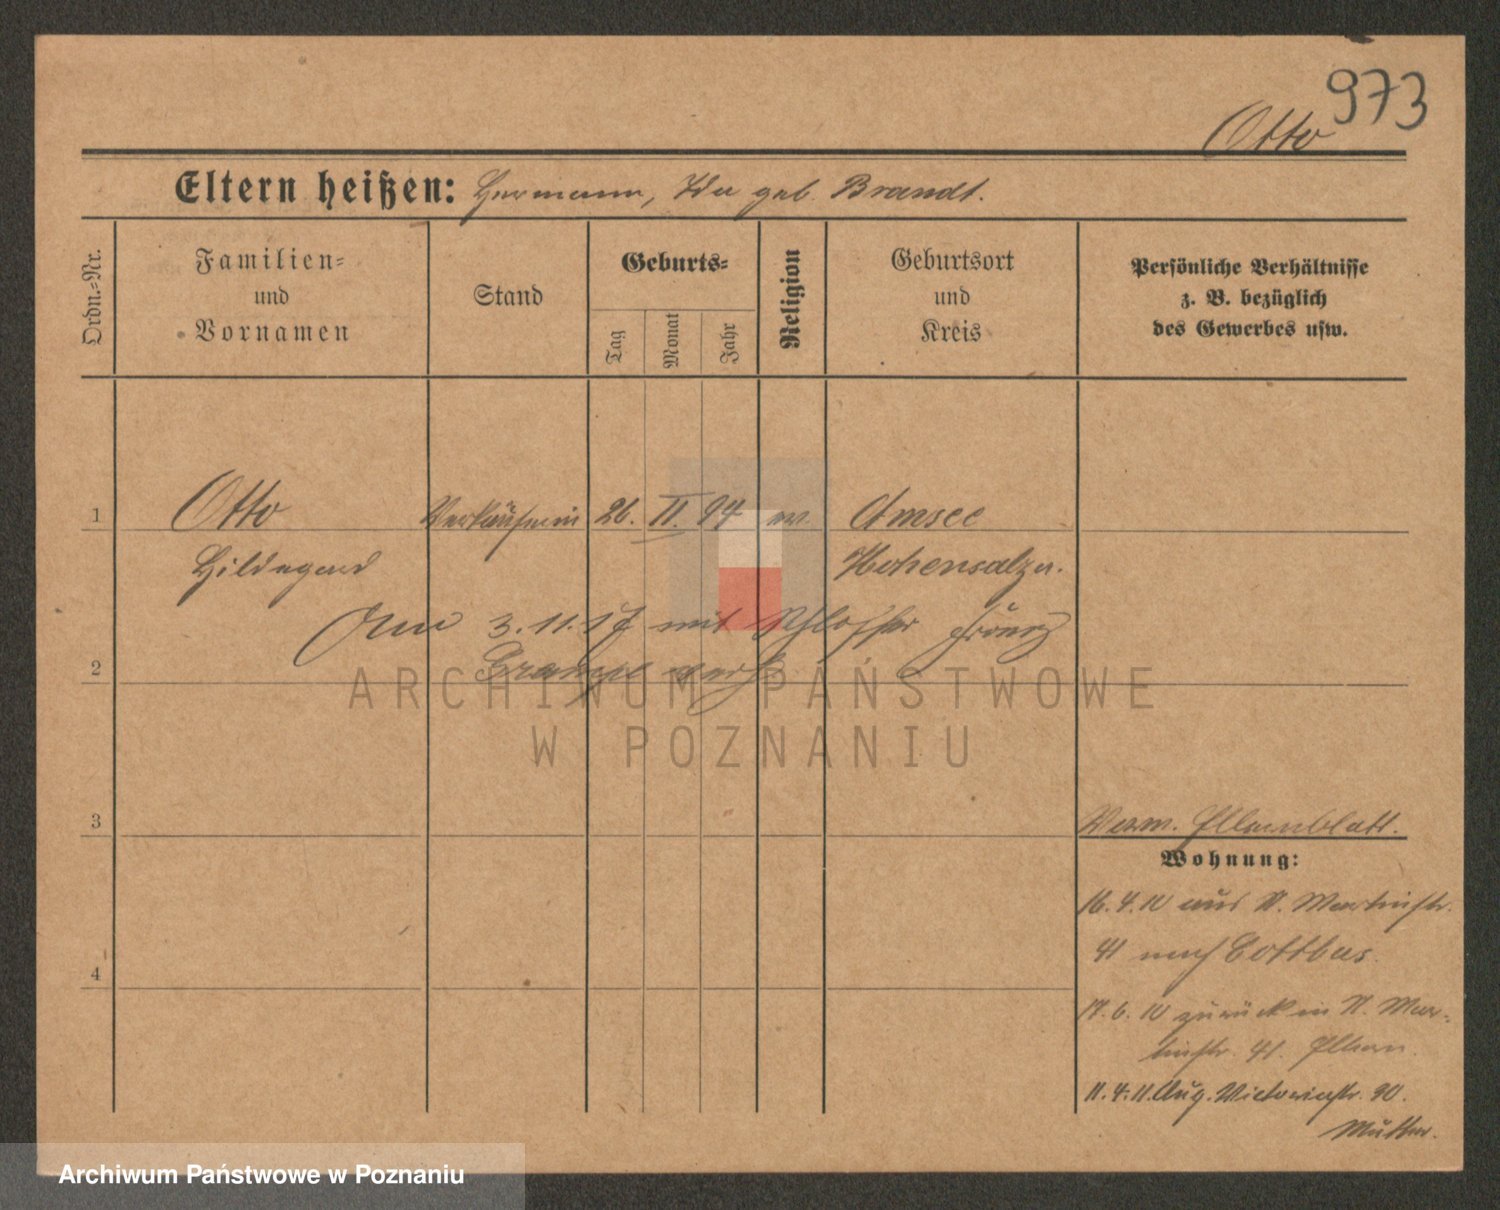 973
Otto
Eltern heißen: Hermann, Ida geb. Brandt.
Ordn.-Nr.
Familien-
und
Vornamen
Stand
Geburts-
Tag
Monat
Jahr
Religion
Geburtsort
und
Kreis
Persönliche Verhältnisse
z. B. bezüglich
des Gewerbes usw.
1 Otto Verkäuferin 26. II. 94 ev. Amsee
Hildegard Hohensalza.
3.11.17 mit Schlosser Franz
2
3
Verm. Elternblatt.
Wohnung:
16.4.10 aus St. Martinstr.
41 nach Cottbus.
4
17.6.10 zurück in St. Mar-
tinstr. 41. Eltern.
11.4.11. Aug. Victoriastr. 30.
Mutter.
ARCHIWUM PAŃSTWOWE
W POZNANIU
Archiwum Państwowe w Poznaniu